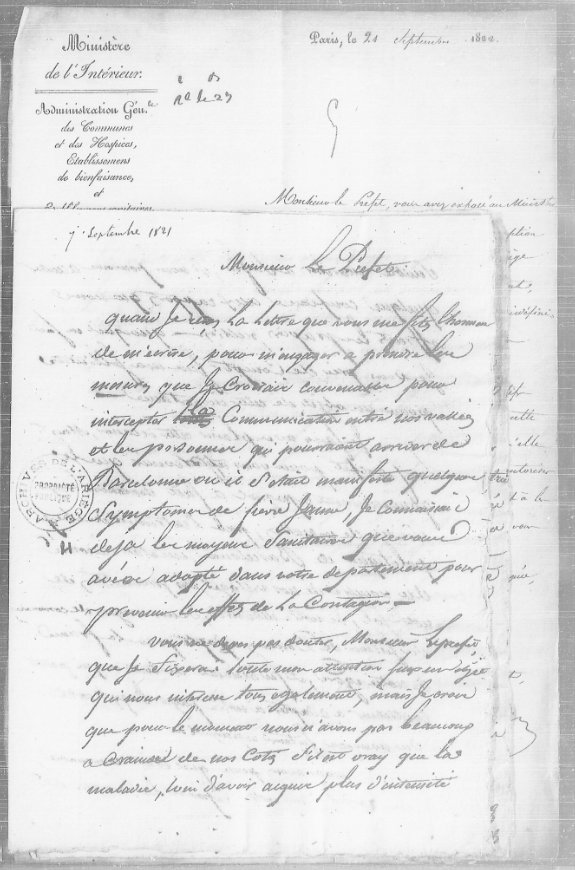 Ministère
de l'Intérieur.
Administration Gén.le
des Communes
et des Hospices,
Etablissemens
de bienfaisance,
et
Paris, le 21 Septembre
Monsieur le Préfet, vous avez exposé au
7 Septembre 1821
Monsieur Le Préfet
quand Je reçus La Lettre que vous me fites l'honneur
de m'écrire, pour m'engager a prendre les
mesures que Je Croirais convenables pour
intercepter La Communication entre nos vallées
et les personnes qui pourraient arriver de
Barcelonne ou il S'était manifesté quelques
Symptomes de fièvre Jaune, Je Connaissais
deja les moyens Sanitaires que vous
aviez adopté dans votre departement pour
prevenir les effets de La Contagion
vous ne devez pas douter, Monsieur le prefet
que Je fixerai toute mon attention sur un objet
qui nous interesse tous egalement, mais Je crois
que pour le moment nous n'avons pas beaucoup
a Craindre de nos Cotés S'il est vray que la
maladie, loin d'avoir acquis plus d'intensité
ARCHIVES DE L'ARIÈGE